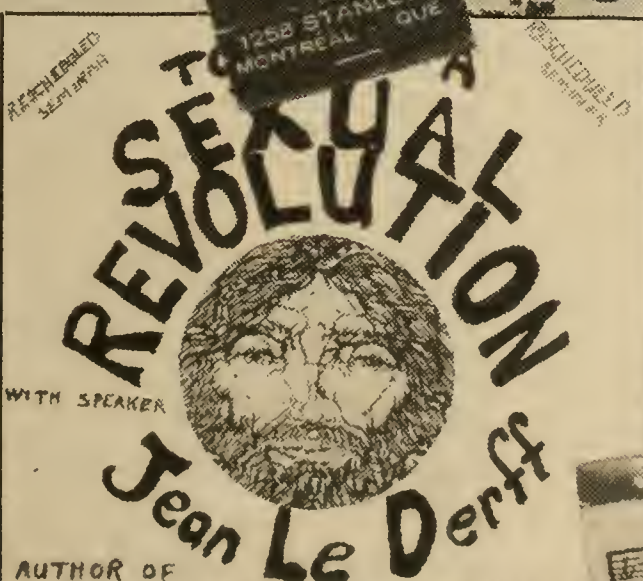 1258 STANL
MONTREAL QUE
RESCHEDULED
SEMINAR
RESCHEDULED
SEMINAR
T A
SEXUAL
REVOLUTION
WITH SPEAKER
Jean Le Derff
AUTHOR OF